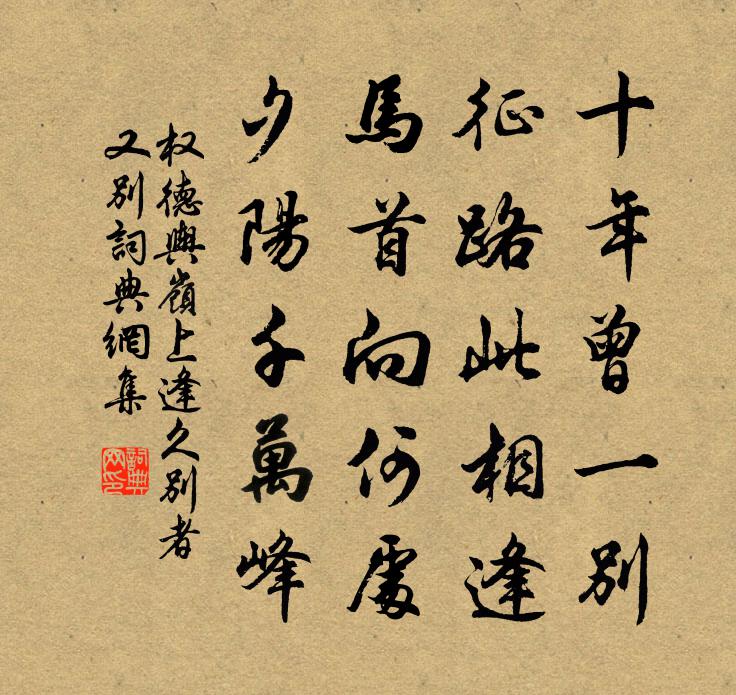 十年曾一别
征路此相逢
馬首向何處
夕陽千萬峰
权德輿嶺上逢久别者
又别詞典網集
詞典网印